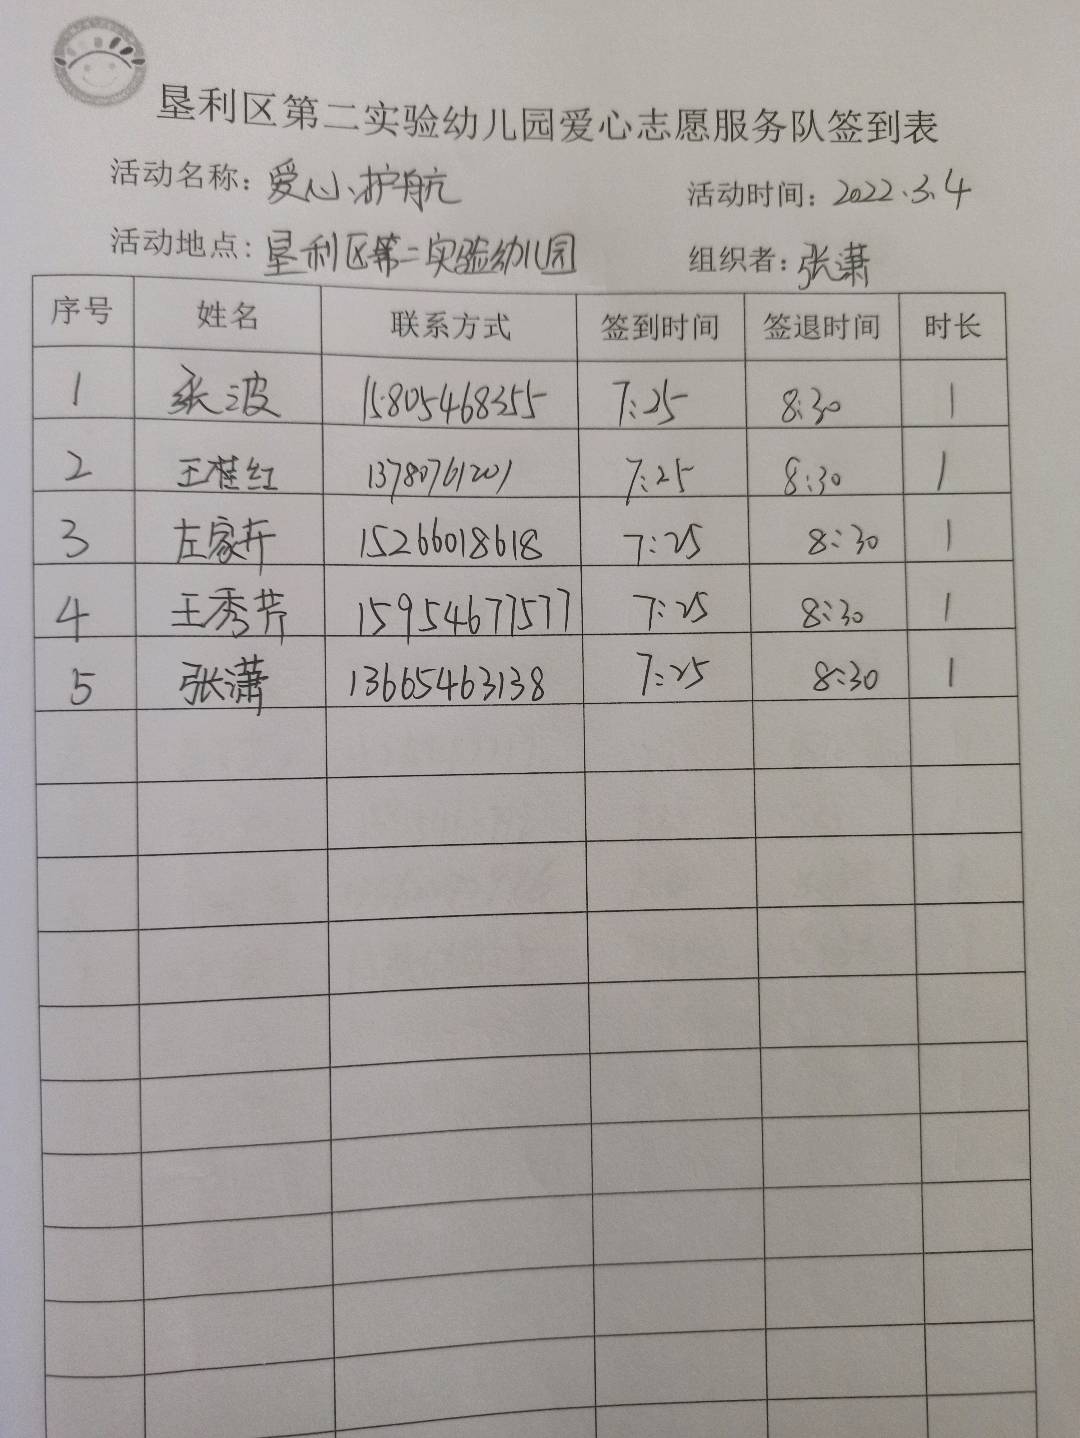 垦利区第二实验幼儿园爱心志愿服务队签到表
活动名称：爱心护航 活动时间：2022.3.4
活动地点：垦利区第二实验幼儿园 组织者：张潇
序号 姓名 联系方式 签到时间 签退时间 时长
1 张波 15805468355 7:25 8:30 1
2 王桂红 13780761201 7:25 8:30 1
3 左家卉 15266018618 7:25 8:30 1
4 王秀芹 15954677577 7:25 8:30 1
5 张潇 13665463138 7:25 8:30 1